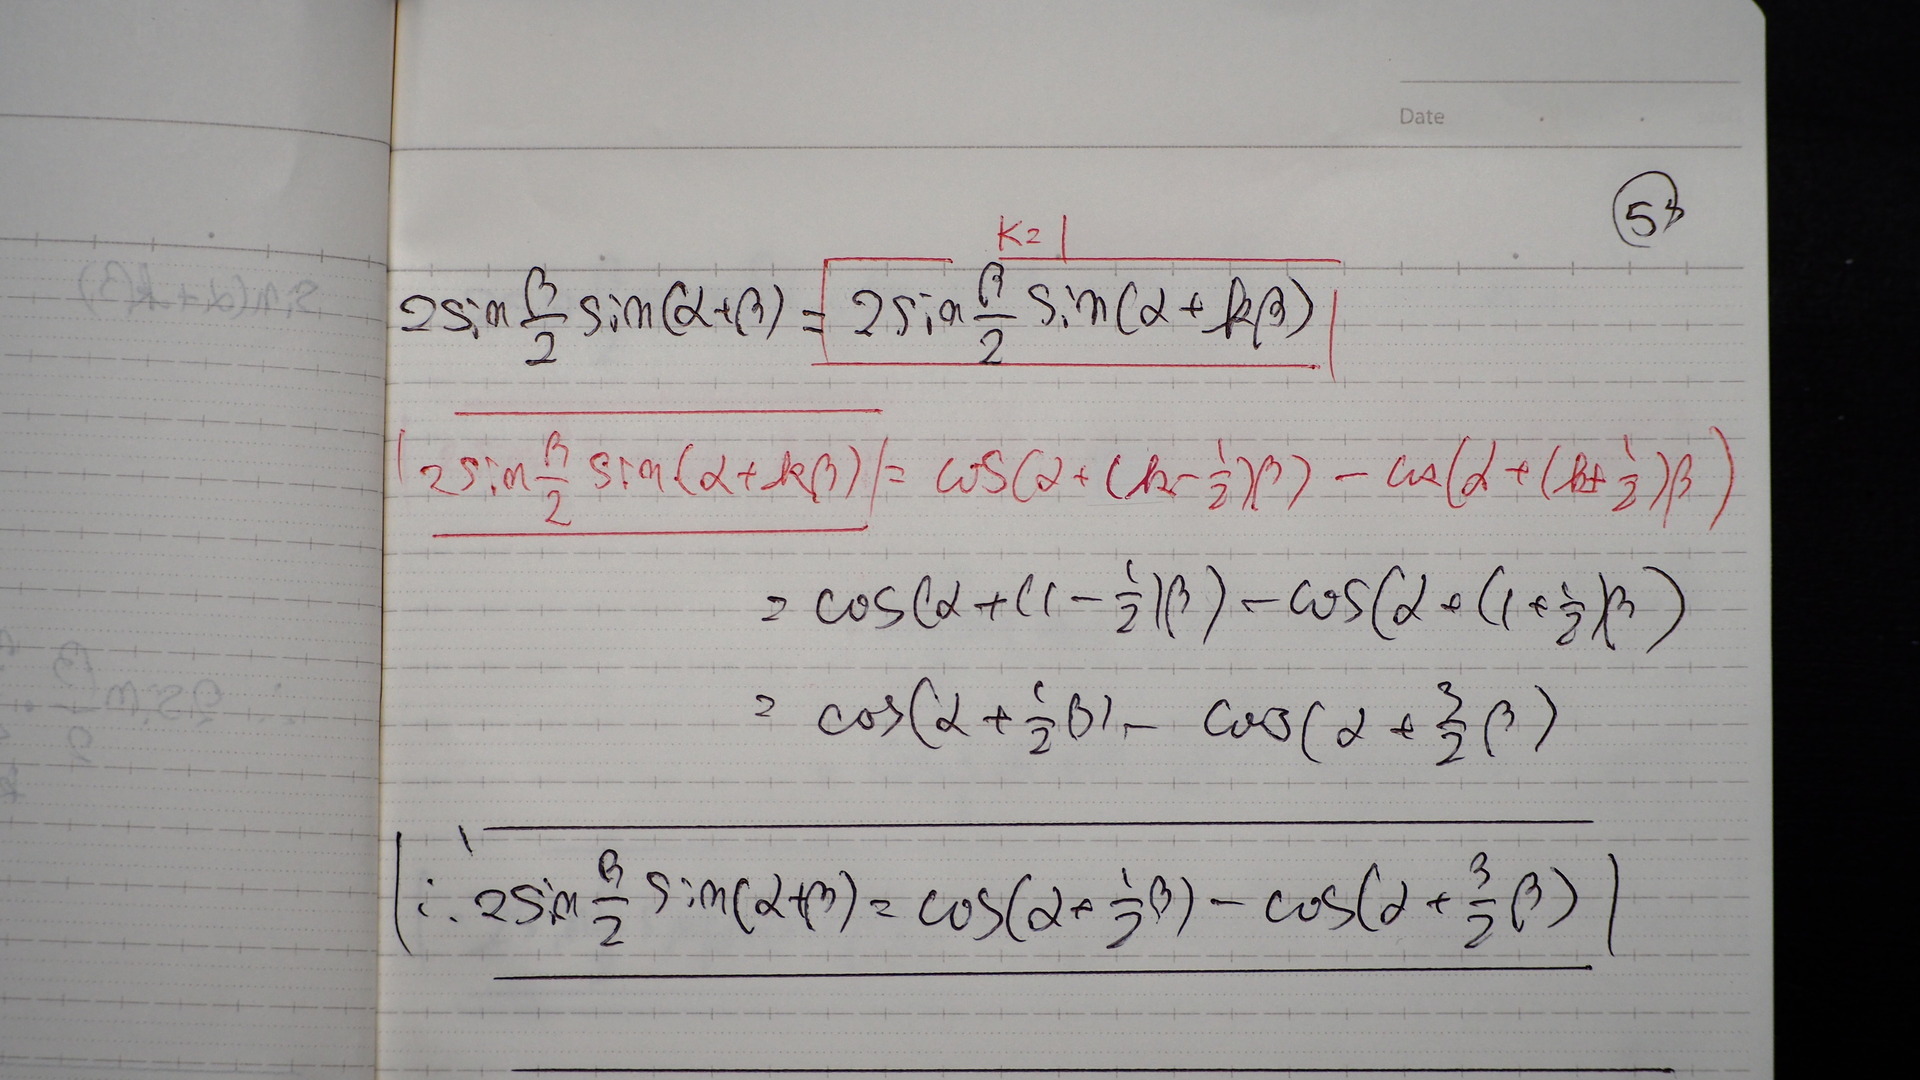 Date
53
K=1
2sin β/2 sin(α+β) = 2sin β/2 sin(α+kβ)
2sin β/2 sin(α+kβ) = cos(α+(k-1/2)β) - cos(α+(k+1/2)β)
= cos(α+(1-1/2)β) - cos(α+(1+1/2)β)
= cos(α+1/2β) - cos(α+3/2β)
∴ 2sin β/2 sin(α+β) = cos(α+1/2β) - cos(α+3/2β)